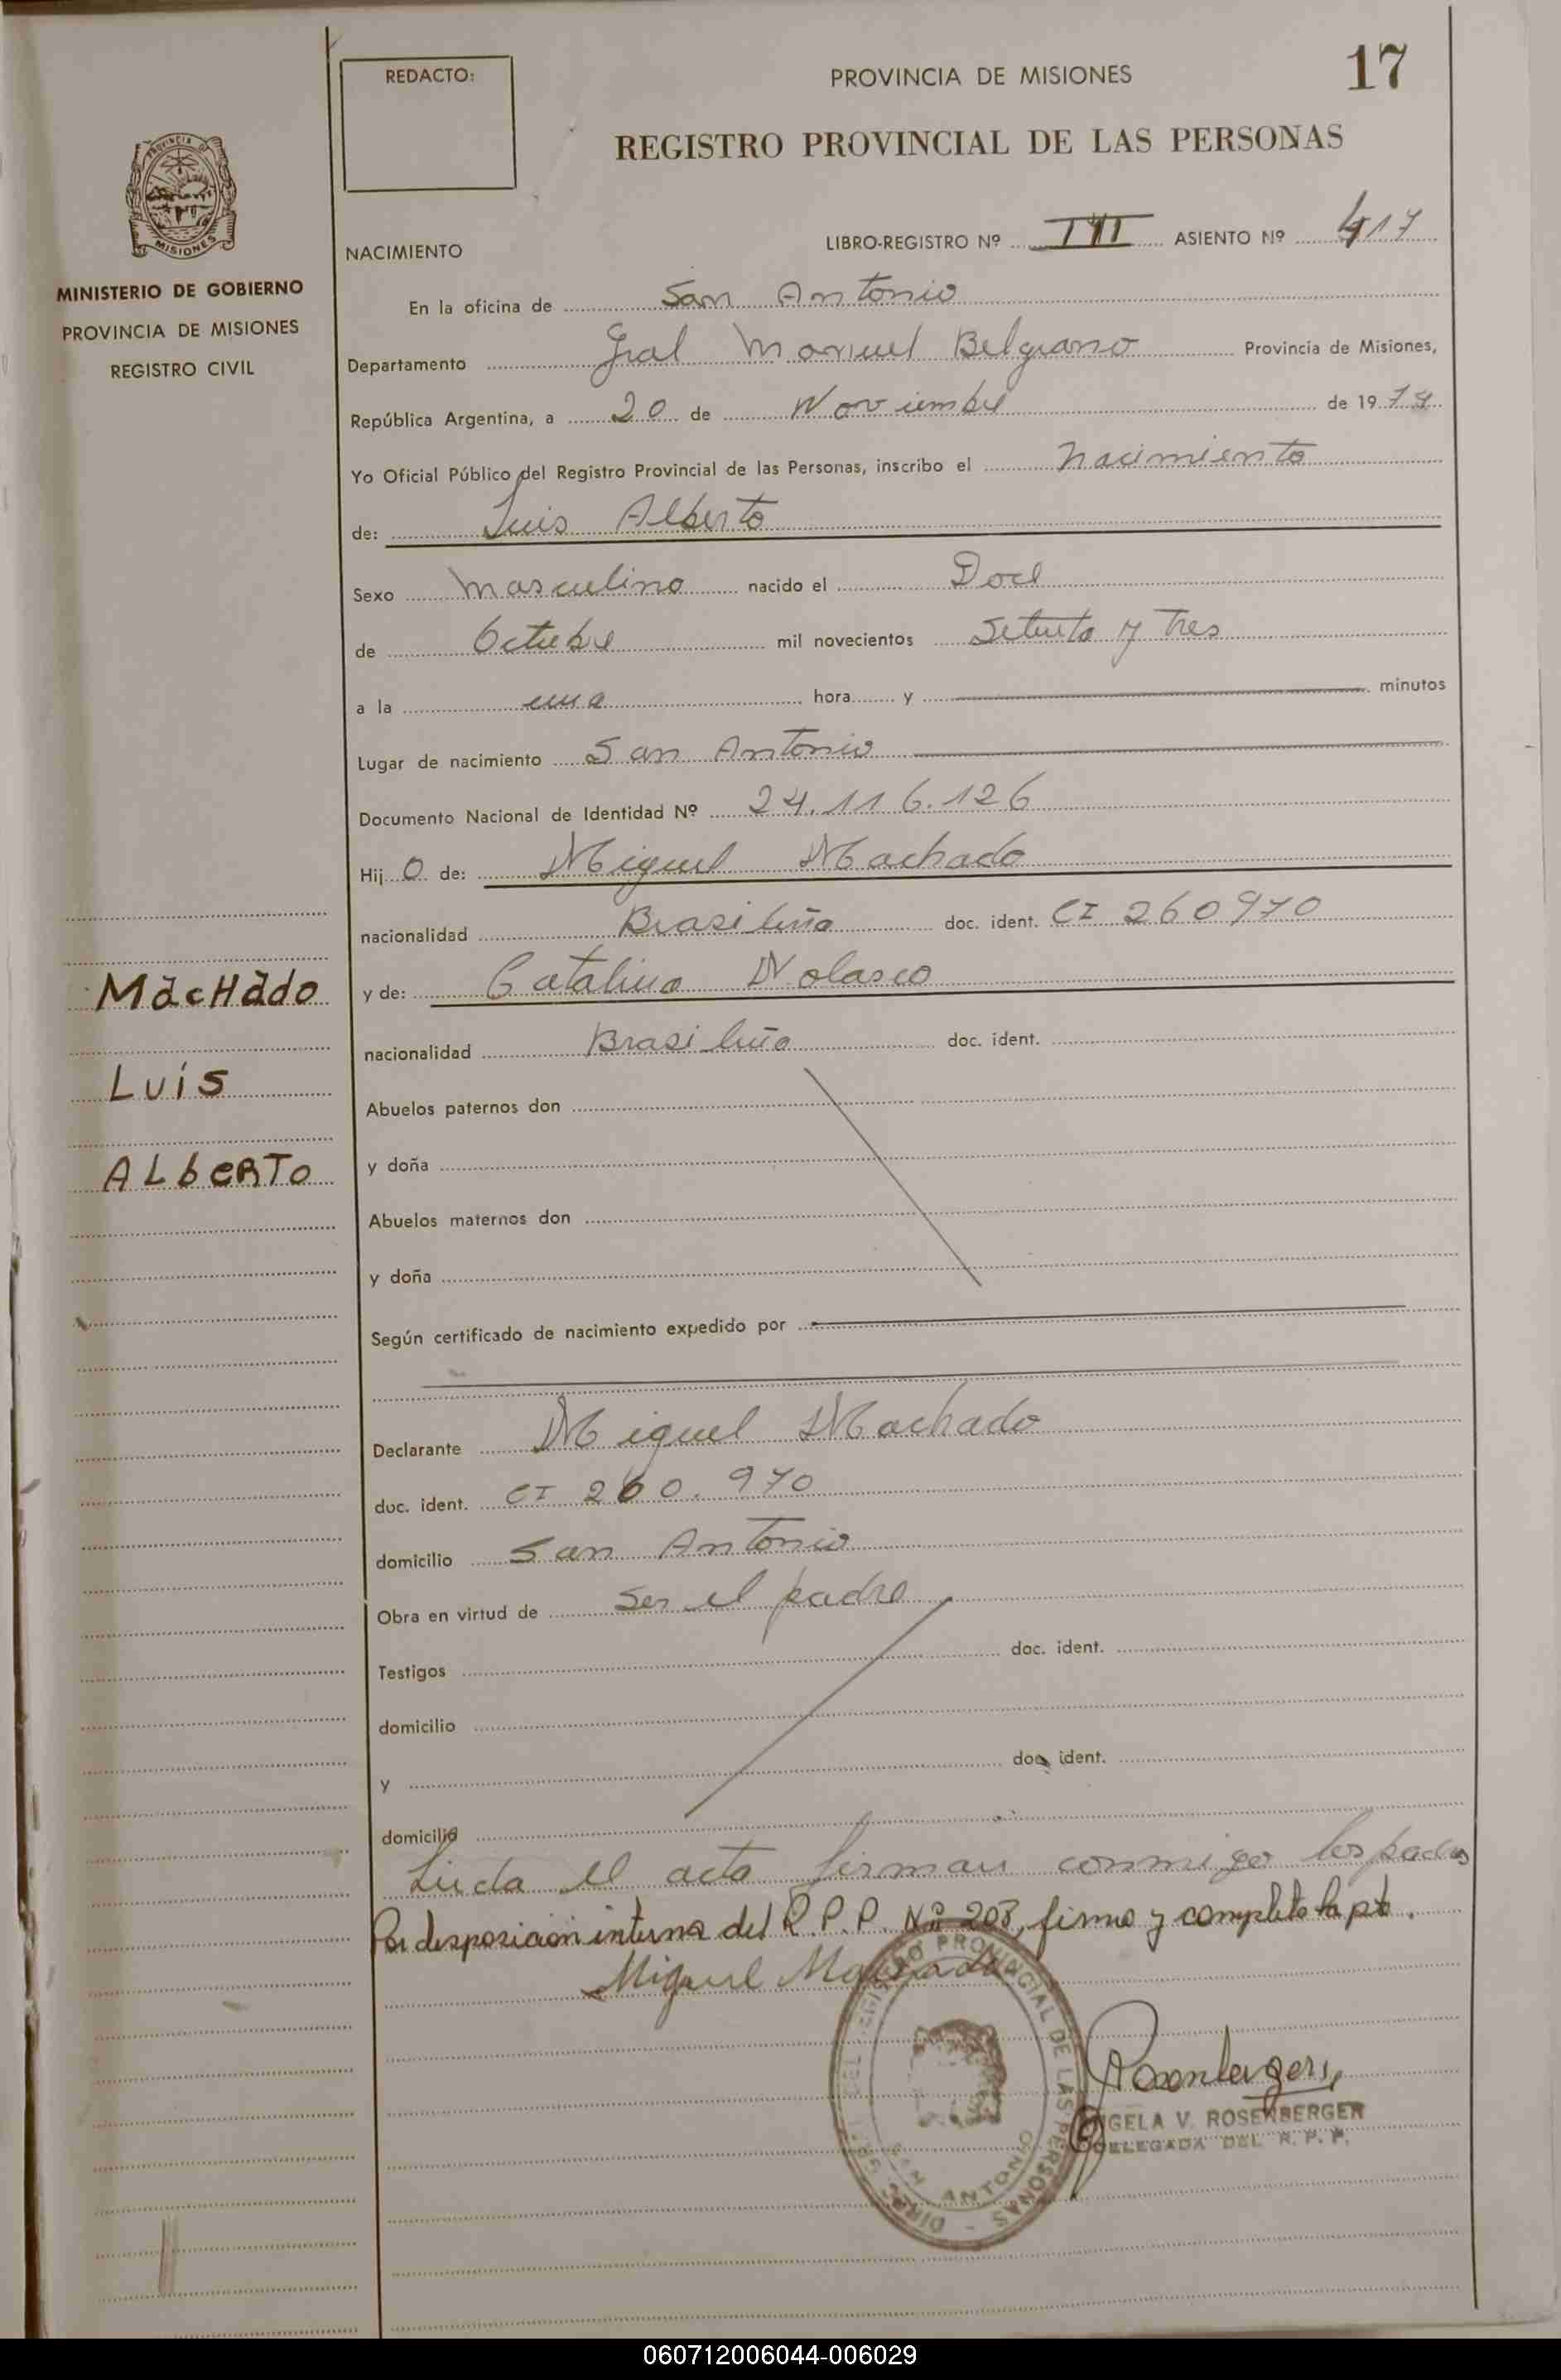 REDACTO:
PROVINCIA DE MISIONES
17
REGISTRO PROVINCIAL DE LAS PERSONAS
PROVINCIA DE
MISIONES
MINISTERIO DE GOBIERNO
PROVINCIA DE MISIONES
REGISTRO CIVIL
NACIMIENTO
LIBRO-REGISTRO Nº III ASIENTO Nº 417
En la oficina de San Antonio
Departamento Gral Manuel Belgrano Provincia de Misiones,
República Argentina, a 20 de Noviembre de 1974
Yo Oficial Público del Registro Provincial de las Personas, inscribo el Nacimiento
de: Luis Alberto
Sexo Masculino nacido el Doce
de Octubre mil novecientos Setenta y Tres
a la una hora y minutos
Lugar de nacimiento San Antonio
Documento Nacional de Identidad Nº 24.116.126
Hij o de: Miguel Machado
nacionalidad Brasileña doc. ident. CI 260970
y de: Catalina Nolasco
nacionalidad Brasileña doc. ident.
Abuelos paternos don
y doña
Abuelos maternos don
y doña
Según certificado de nacimiento expedido por
Declarante Miguel Machado
doc. ident. CI 260.970
domicilio San Antonio
Obra en virtud de Ser el padre
Testigos doc. ident.
domicilio
y doc. ident.
domicilio
Leida el acta firman conmigo los padres
Por disposicion interna del R.P.P. Nº 203, firmo y completo la pte.
Miguel Machado
MacHado
Luis
ALbeRTo
REGISTRO PROVINCIAL DE LAS PERSONAS
SAN ANTONIO
Rosenberger
ANGELA V. ROSENBERGER
DELEGADA DEL R. P. P.
060712006044-006029